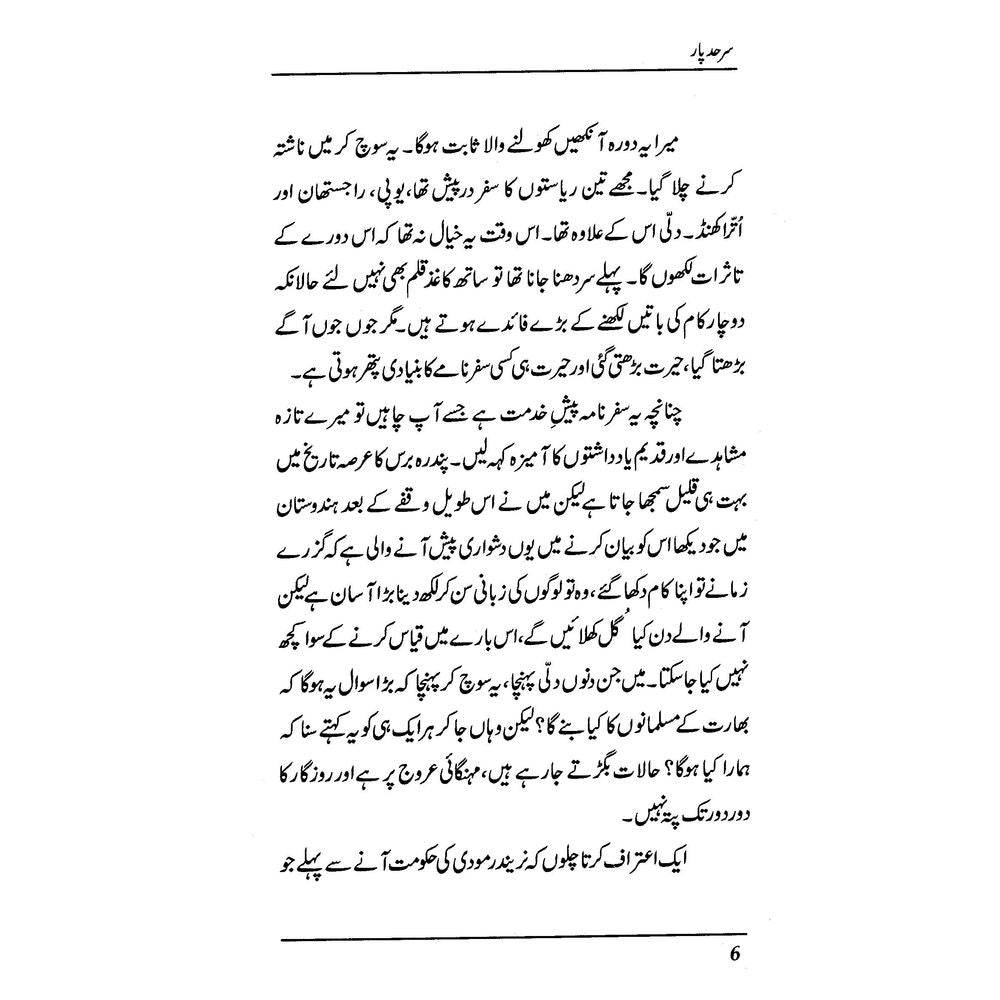 سرحد پار
میرا یہ دورہ آنکھیں کھولنے والا ثابت ہوگا۔ یہ سوچ کر میں ناشتہ
کرنے چلا گیا۔ مجھے تین ریاستوں کا سفر درپیش تھا، یوپی، راجستھان اور
اُتّراکھنڈ۔ دلّی اس کے علاوہ تھا۔ اس وقت یہ خیال نہ تھا کہ اس دورے کے
تاثرات لکھوں گا۔ پہلے سردھنا جانا تھا تو ساتھ کاغذ قلم بھی نہیں لئے حالانکہ
دو چار کام کی باتیں لکھنے کے بڑے فائدے ہوتے ہیں۔ مگر جوں جوں آگے
بڑھتا گیا، حیرت بڑھتی گئی اور حیرت ہی کسی سفر نامے کا بنیادی پتھر ہوتی ہے۔
چنانچہ یہ سفر نامہ پیشِ خدمت ہے جسے آپ چاہیں تو میرے تازہ
مشاہدے اور قدیم یادداشتوں کا آمیزہ کہہ لیں۔ پندرہ برس کا عرصہ تاریخ میں
بہت ہی قلیل سمجھا جاتا ہے لیکن میں نے اس طویل وقفے کے بعد ہندوستان
میں جو دیکھا اس کو بیان کرنے میں یوں دشواری پیش آنے والی ہے کہ گزرے
زمانے تو اپنا کام دکھا گئے، وہ تو لوگوں کی زبانی سن کر لکھ دینا بڑا آسان ہے لیکن
آنے والے دن کیا گُل کھلائیں گے، اس بارے میں قیاس کرنے کے سوا کچھ
نہیں کیا جا سکتا۔ میں جن دنوں دلّی پہنچا، یہ سوچ کر پہنچا کہ بڑا سوال یہ ہوگا کہ
بھارت کے مسلمانوں کا کیا بنے گا؟ لیکن وہاں جا کر ہر ایک ہی کو یہ کہتے سنا کہ
ہمارا کیا ہوگا؟ حالات بگڑتے جا رہے ہیں، مہنگائی عروج پر ہے اور روزگار کا
دور دور تک پتہ نہیں۔
ایک اعتراف کرتا چلوں کہ نریندر مودی کی حکومت آنے سے پہلے جو
6